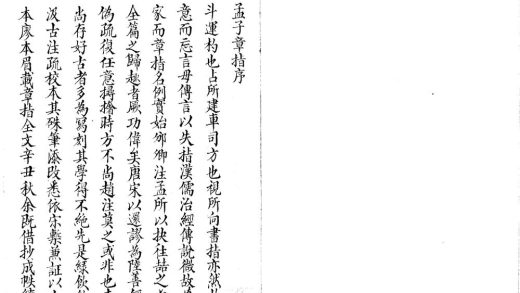 孟子章指序
斗運杓也占所建車司方也視所向書指亦然
意而忘言毋傳言以失指漢儒治經傳說微故
家而章指名例實始邠卿注孟所以抉往喆之
全篇之歸趣者厥功偉矣唐宋以還謬為陸善
偽疏復任意撏撦時方不尚趙注莫之或非也
尚存好古者多為寫刻其學得不絕先是綠飲
汲古注疏校本其硃筆添改悉依宋槧兼証以
本廖本眉載章指全文辛丑秋余既借抄成帙